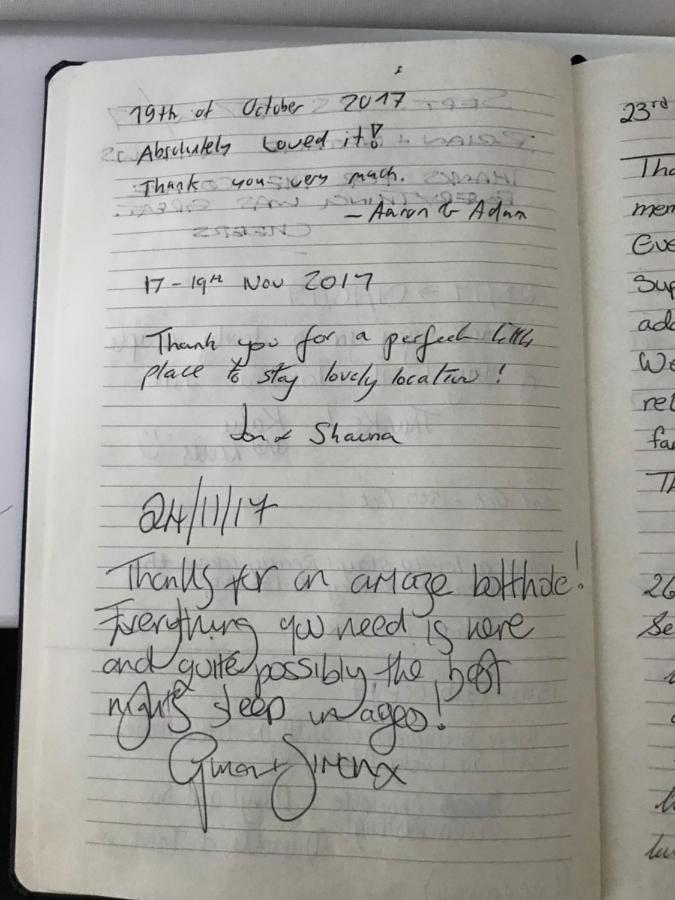 19th of October 2017
Absolutely Loved it!
Thank you very much.
- Aaron & Adam
17-19th Nov 2017
Thank you for a perfect little
place to stay lovely location!
Jon & Shauna
24/11/17
Thanks for an amaze bolthole!
Everything you need is here
and quite possibly the best
nights sleep in ages!
23rd
Tha
mem
Eve
Sup
add
We
rel
fa
Th
26
Se